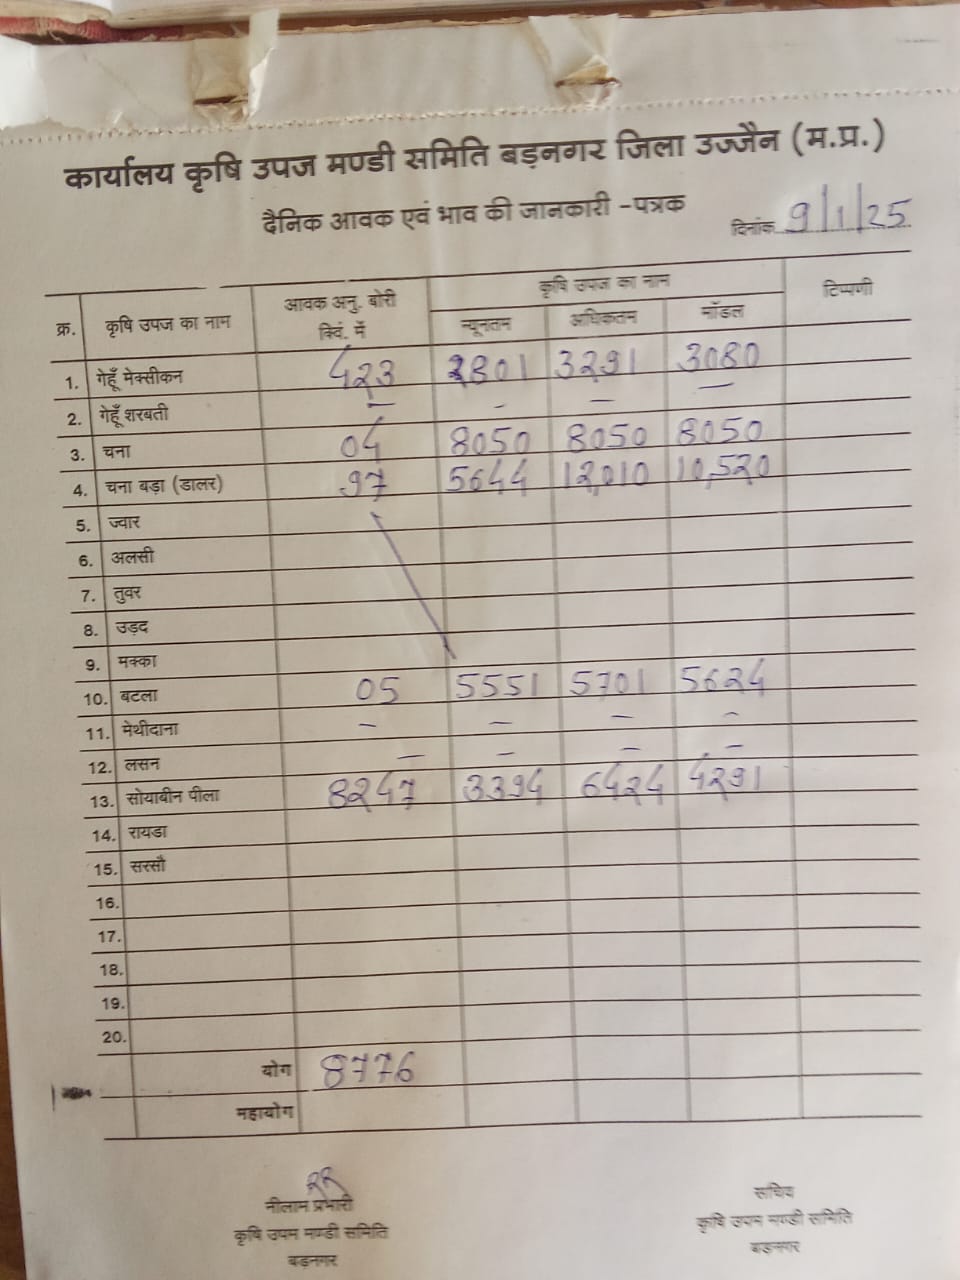 कार्यालय कृषि उपज मण्डी समिति बड़नगर जिला उज्जैन (म.प्र.)
दैनिक आवक एवं भाव की जानकारी -पत्रक
दिनांक 9/1/25
क्र. कृषि उपज का नाम आवक अनु. बोरी क्विं. में कृषि उपज का नाम टिप्पणी
न्यूनतम अधिकतम मॉडल
1. गेहूँ मेक्सीकन 423 2801 3291 3080
2. गेहूँ शरबती - - - -
3. चना 04 8050 8050 8050
4. चना बड़ा (डालर) 97 5644 12,010 10,520
5. ज्वार
6. अलसी
7. तुवर
8. उड़द
9. मक्का
10. बटला 05 5551 5701 5624
11. मेथीदाना - - - -
12. लसन - - - -
13. सोयाबीन पीला 8247 3394 6424 4291
14. रायडा
15. सरसौ
16.
17.
18.
19.
20.
योग 8776
महायोग
नीलाम प्रभारी
कृषि उपम मण्डी समिति
बड़नगर
सचिव
कृषि उपम मण्डी समिति
बड़नगर